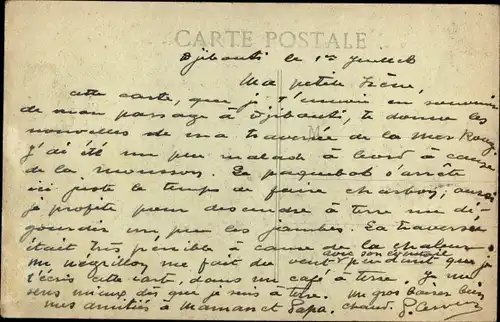 CARTE POSTALE
Djibouti le 1er Juillet
Ma petite Irène,
Cette carte, que je t'envoie en souvenir
de mon passage à Djibouti, te donne les
nouvelles de ma traversée de la Mer Rouge
J'ai été un peu malade à bord à cause
de la mousson. Le paquebot s'arrête
ici juste le temps de faire charbon, aussi
je profite pour descendre à terre me dé-
gourdir un peu les jambes. La traversée
était très pénible à cause de la chaleur.
avec son éventail
Un négrillon me fait du vent pendant que je
t'écris cette carte, dans un café à terre. Je me
sens mieux dès que je suis à terre. Un gros baiser bien
mes amitiés à Maman et Papa. chaud.